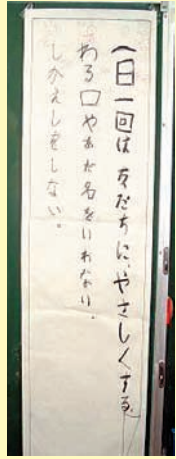 一日一回は友だちに、やさしくする。
わる口やあだ名をいわない。
しかえしをしない。